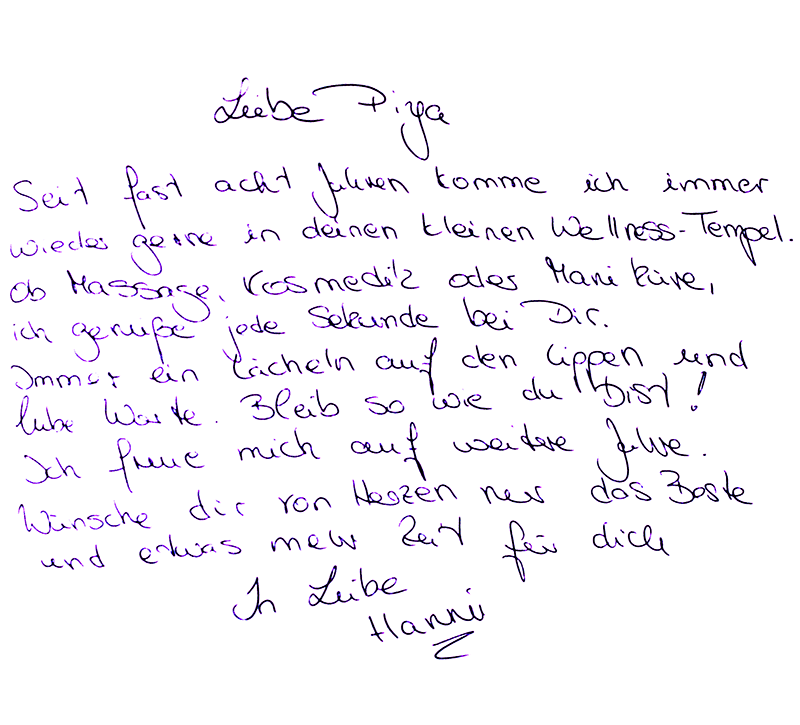 Liebe Piya
Seit fast acht Jahren komme ich immer
wieder gerne in deinen kleinen Wellness-Tempel.
Ob Massage, Kosmedik oder Maniküre,
ich genieße jede Sekunde bei Dir.
Immer ein Lächeln auf den Lippen und
liebe Worte. Bleib so wie du Bist!
Ich freue mich auf weitere Jahre.
Wünsche dir von Herzen nur das Beste
und etwas mehr Zeit für dich
In Liebe
Hanni